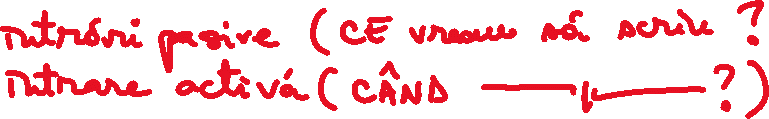 intrări pasive (CE vreau să scriu ?
intrare activă (CÂND —||— ?)